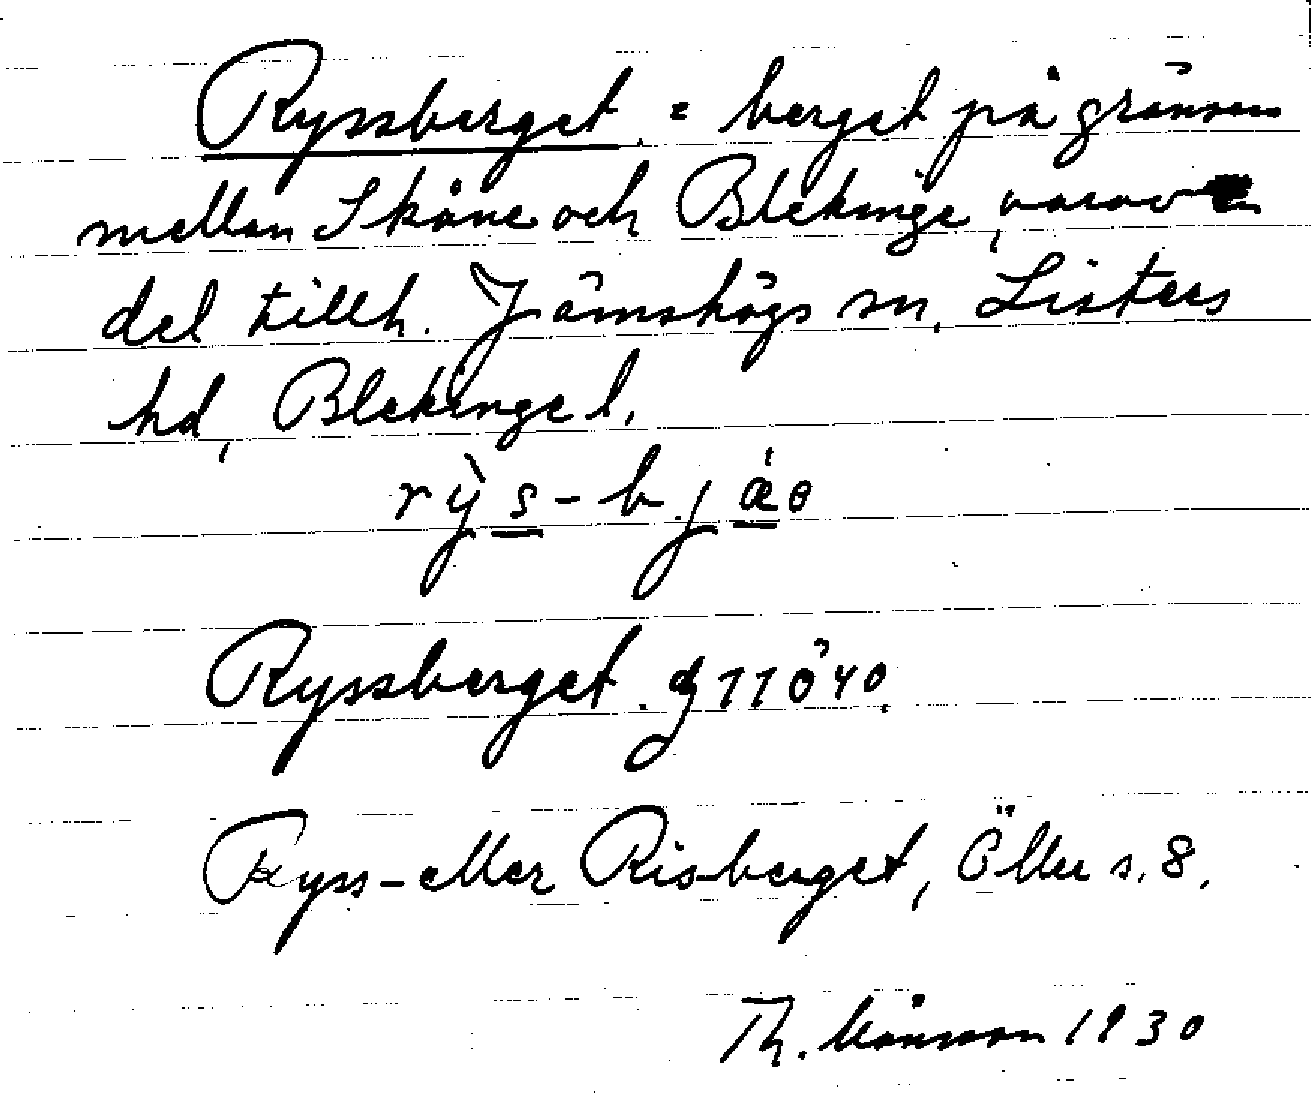 Ryssberget = berget på gränsen
mellan Skåne och Blekinge, varav en
del tillh. Jämshögs sn, Listers
hd, Blekinge l.
rỳs-bjǽo
Ryssberget. G 11 Ö 40.
Ryss- eller Risberget, Öller s. 8.
Th. Månsson 1930